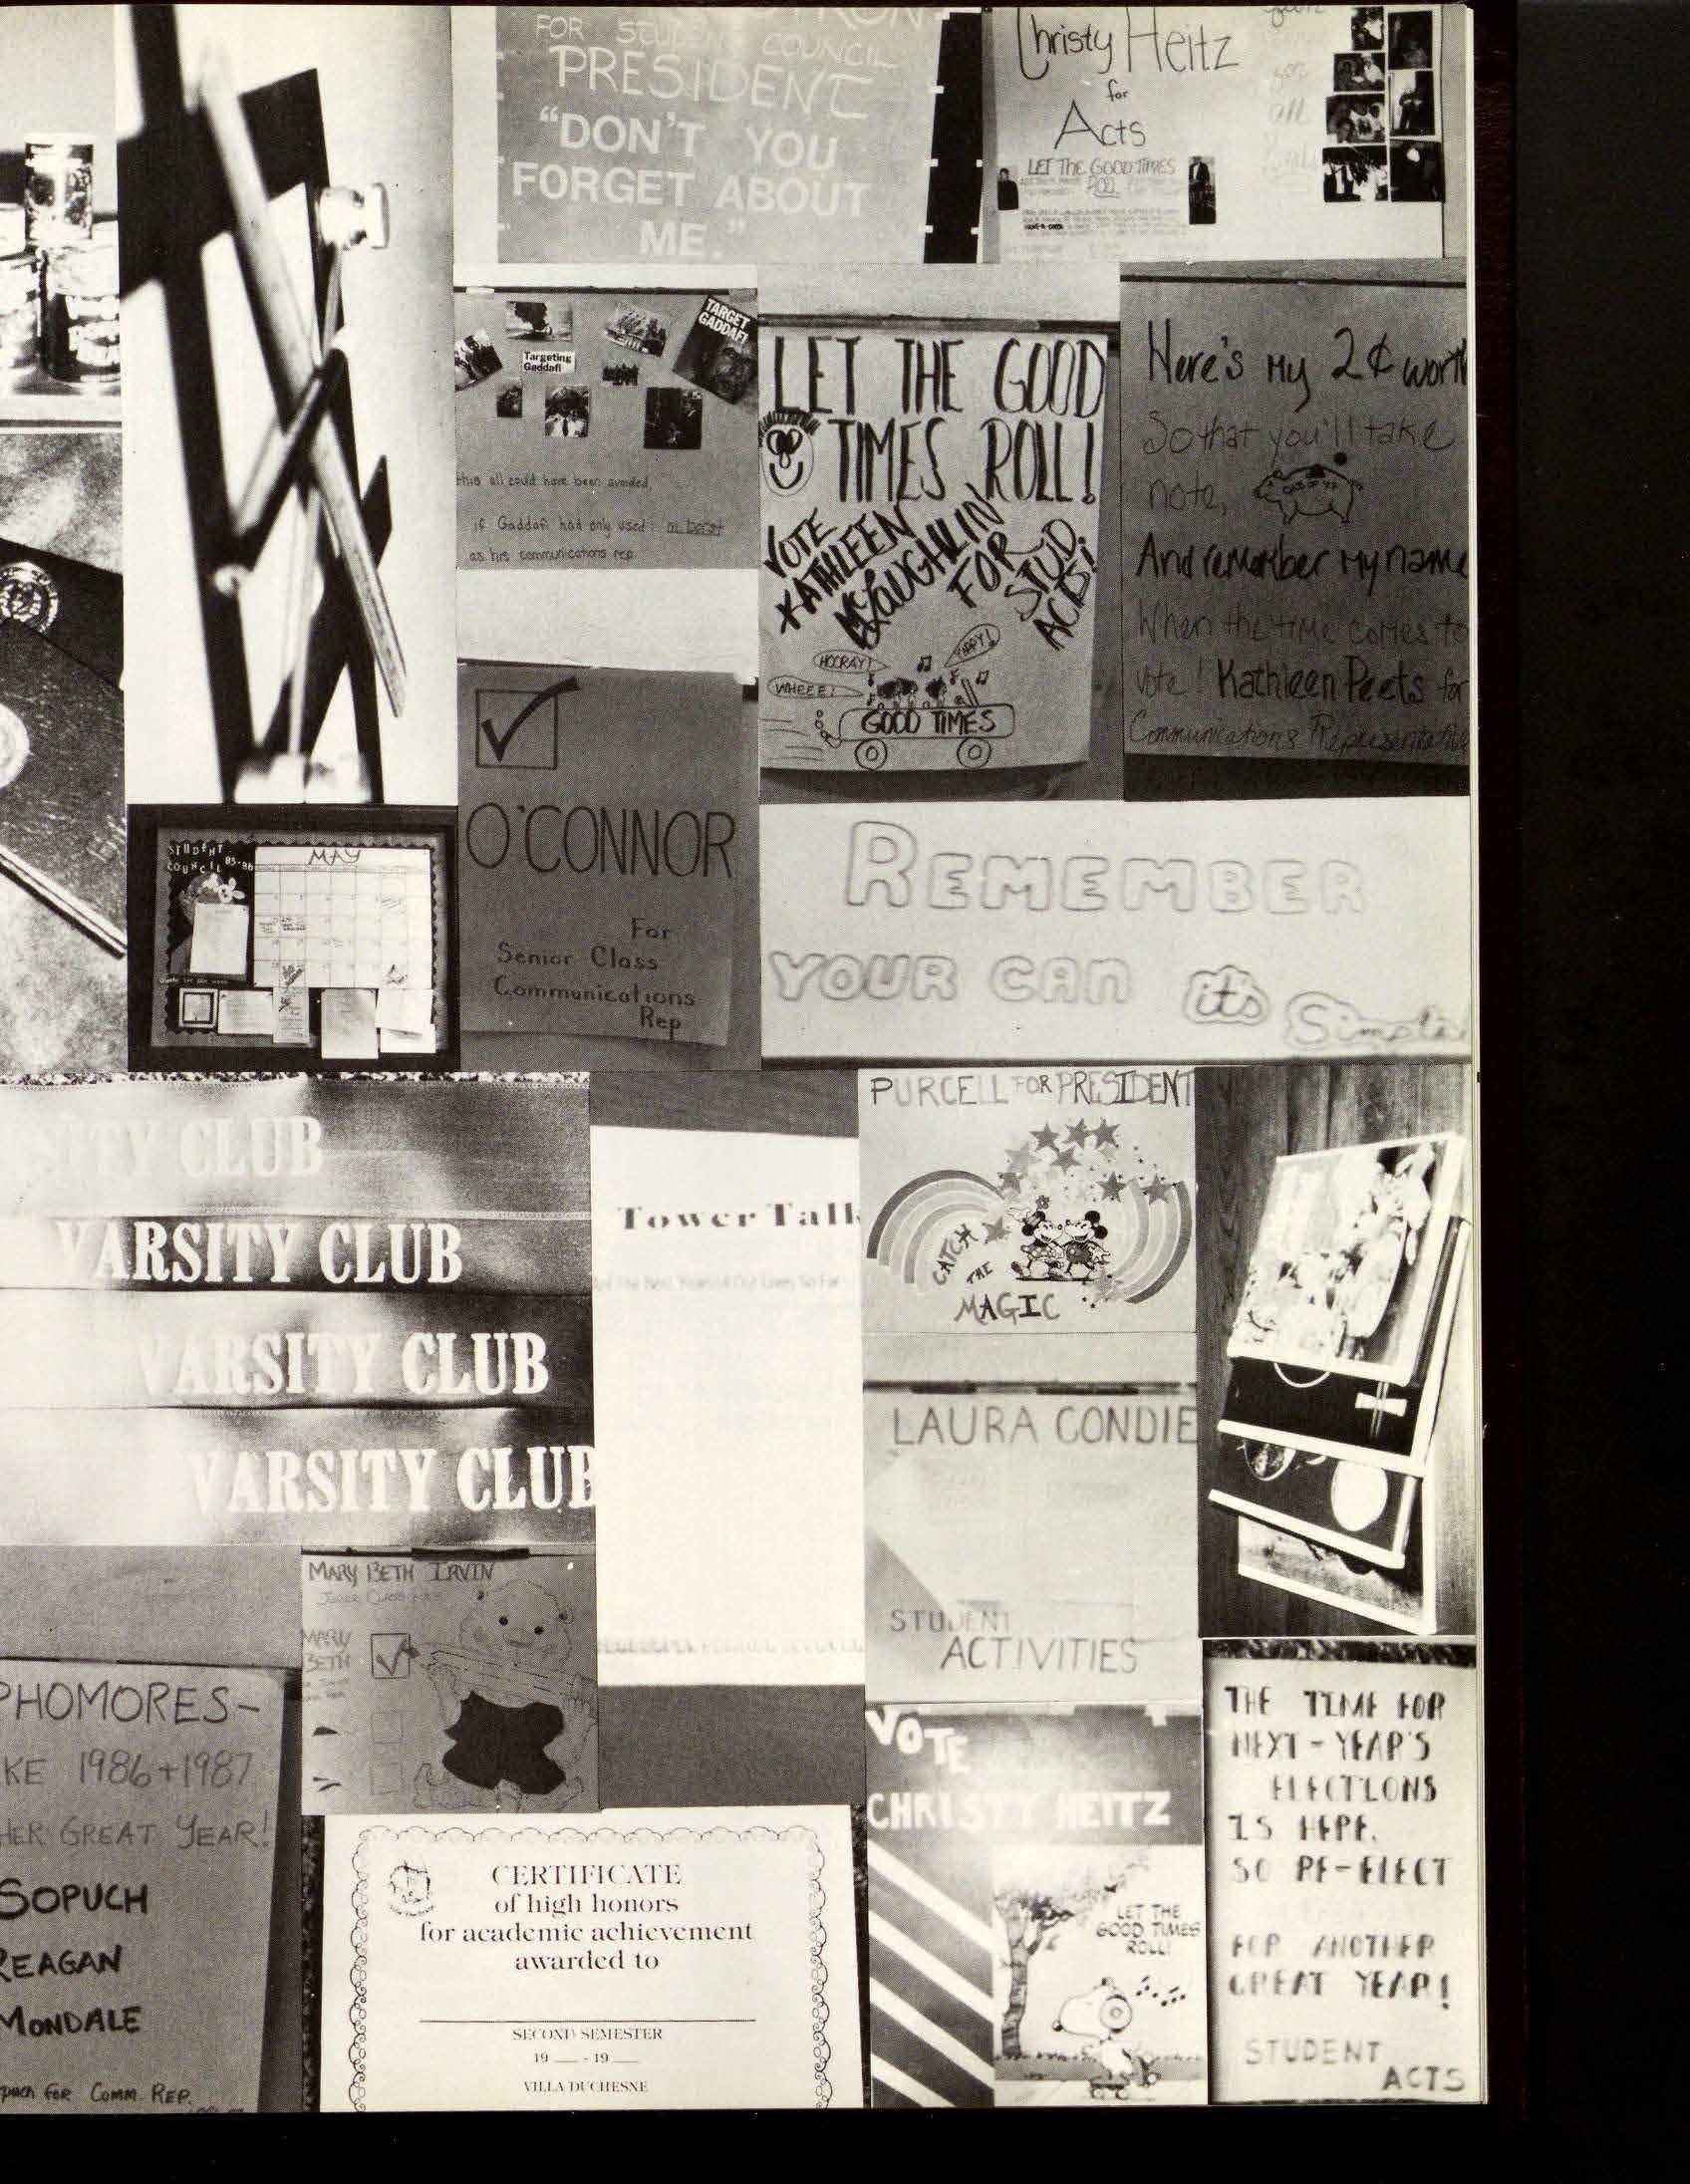 FOR STUDENT COUNCIL
PRESIDENT
"DON'T YOU
FORGET ABOUT
ME."
Christy Heitz
for
Acts
LET THE GOOD TIMES
ROLL
for
all
TARGET
GADDAFI
Targeting
Gaddafi
this all could have been avoided,
if Gaddafi had only used
as his communications rep
LET THE GOOD
TIMES ROLL!
VOTE
KATHLEEN
McLAUGHLIN
FOR
STUD.
ACTS!
HOORAY!
YIPPY!
WHEEE!
GOOD TIMES
Here's My 2¢ worth
So that you'll take
note,
And remember My name
When the time comes to
vote! Kathleen Peets for
Communications Representative
O'CONNOR
For
Senior Class
Communications
Rep
STUDENT
COUNCIL 85-86
MAY
REMEMBER
YOUR CAN it's Simple
SITY CLUB
VARSITY CLUB
VARSITY CLUB
VARSITY CLUB
Tower Talk
PURCELL FOR PRESIDENT
CATCH
THE
MAGIC
LAURA CONDIE
STUDENT
ACTIVITIES
MARY BETH IRVIN
MARY
BETH
PHOMORES-
KE 1986+1987
HER GREAT YEAR!
SOPUCH
REAGAN
MONDALE
for Comm. Rep.
CERTIFICATE
of high honors
for academic achievement
awarded to
SECOND SEMESTER
19 __ - 19 __
VILLA DUCHESNE
VOTE
CHRISTY HEITZ
LET THE
GOOD TIMES
ROLL!
THE TIME FOR
NEXT-YEAR'S
ELECTIONS
IS HERE.
SO RE-ELECT
FOR ANOTHER
GREAT YEAR!
STUDENT
ACTS